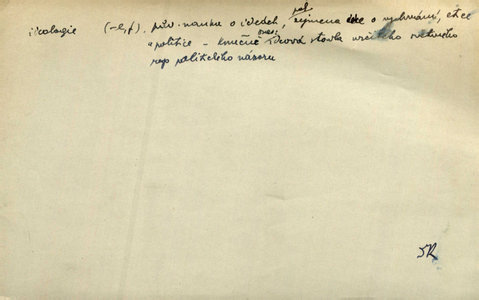 ideologie (-e, f.), pův. nauka o ideách, pak zejména o vychování, etice
a politice – konečně dnes: slovná stavba určitého světového
resp. politického názoru